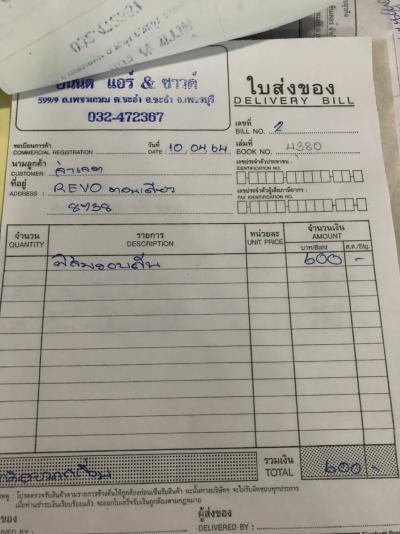 แอร์ & ซาวด์
599/9 ถ.เพชรเกษม ต.ชะอำ อ.ชะอำ จ.เพชรบุรี
032-472367
ใบส่งของ
DELIVERY BILL
เลขที่
BILL NO. 2
ทะเบียนการค้า
COMMERCIAL REGISTRATION
วันที่
DATE : 10.04.64
เล่มที่
BOOK NO. 4380
นามลูกค้า
CUSTOMER:
ที่อยู่
ADDRESS : REVO ตอนเดียว
8738
เลขประจำตัวประชาชน :
IDENTIFICATION NO.
เลขประจำตัวผู้เสียภาษีอากร :
TAX IDENTIFICATION NO.
จำนวน
QUANTITY
รายการ
DESCRIPTION
หน่วยละ
UNIT PRICE
จำนวนเงิน
AMOUNT
บาท/Baht
ส.ต./Stg.
600 -
รวมเงิน
TOTAL
600 -
เหตุ : โปรดตรวจรับสินค้าตามรายการข้างต้นให้ถูกต้องก่อนเซ็นรับสินค้า ฉะนั้นทางบริษัทฯ จะไม่รับผิดชอบทุกประการ
เมื่อท่านชำระเงินเรียบร้อยแล้ว จะออกใบเสร็จรับเงินถูกต้องตามกฎหมาย
ของ
ผู้ส่งของ
DELIVERED BY :